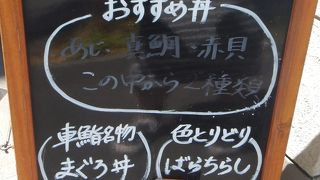 おすすめ丼
あじ・真鯛・赤貝
この中から一種類
車鮨名物
まぐろ丼
色とりどり
ばらちらし